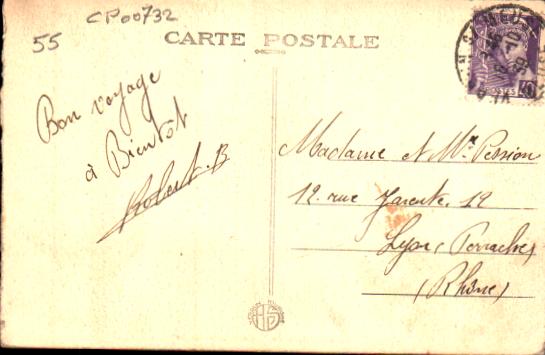 CP00732
55
CARTE POSTALE
Bon voyage
à Bientôt
Robert.B
Madame et Mr Pession
12. rue Jarente. 12
Lyon (Perrache)
(Rhône)